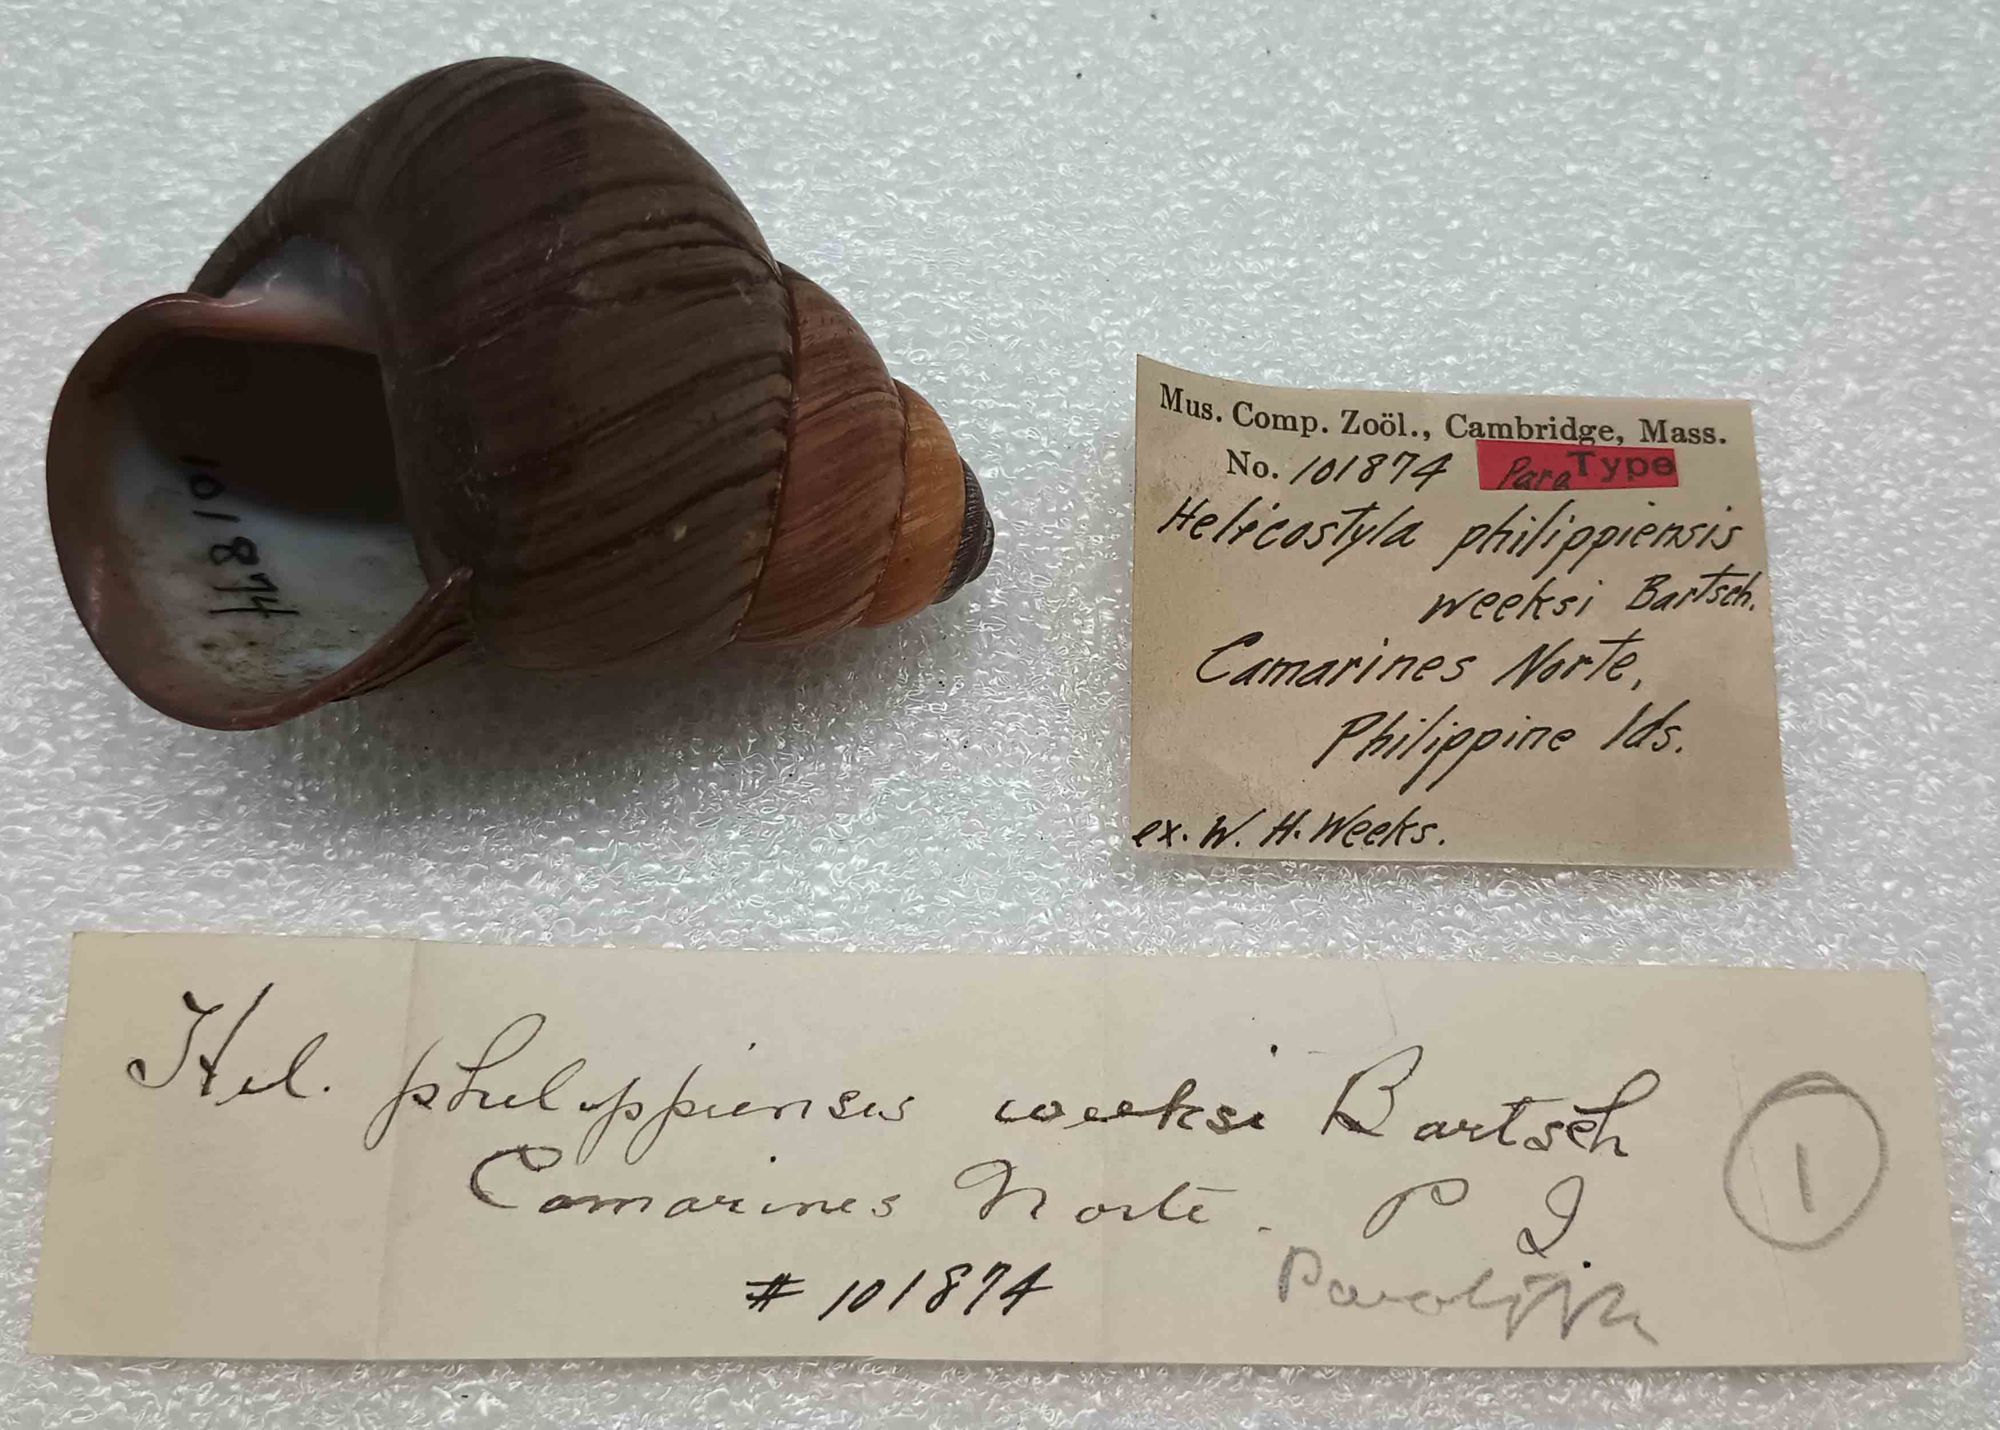 101874
Mus. Comp. Zoöl., Cambridge, Mass.
No. 101874 ParaType
Helicostyla philippiensis
weeksi Bartsch.
Camarines Norte,
Philippine Ids.
ex. W. H. Weeks.
Hel. philippiensis weeksi Bartsch
Camarines Norte. P I.
1
# 101874
Paratype